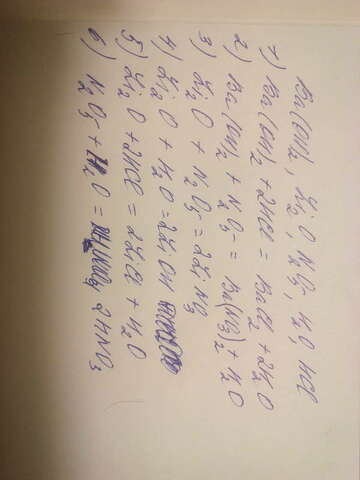 Ba(OH)2, Li2O, N2O5, H2O, HCl
1) Ba(OH)2 + 2HCl = BaCl2 + 2H2O
2) Ba(OH)2 + N2O5 = Ba(NO3)2 + H2O
3) Li2O + N2O5 = 2LiNO3
4) Li2O + H2O = 2LiOH
5) Li2O + 2HCl = 2LiCl + H2O
6) N2O5 + H2O = 2HNO3